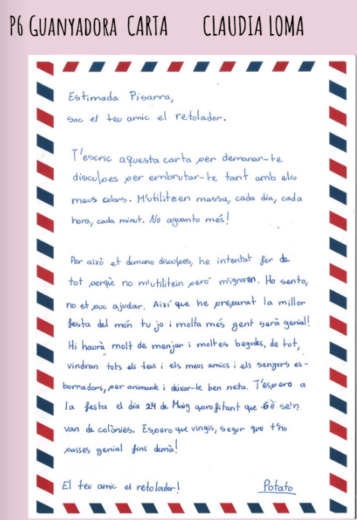 P6 GUANYADORA CARTA CLAUDIA LOMA
Estimada Pisarra,
soc el teu amic el retolador.
T'escric aquesta carta per demanar-te
disculpes per embrutar-te tant amb els
meus colors. M'utilitzen massa, cada dia, cada
hora, cada minut. No aguanto més!
Per això et demano disculpes, he intentat fer de
tot perquè no m'utilitzin però m'ignoren. Ho sento,
no et puc ajudar. Així que he preparat la millor
festa del món tu jo i molta més gent serà genial!
Hi haurà molt de menjar i moltes begudes, de tot,
vindran tots els teus i els meus amics i els senyors es-
borradors, per animar-te i deixar-te ben neta. T'espero a
la festa el dia 24 de Maig aprofitant que 6è se'n
van de colònies. Espero que vingis, segur que t'ho
passes genial fins demà!
El teu amic el retolador!
Potato